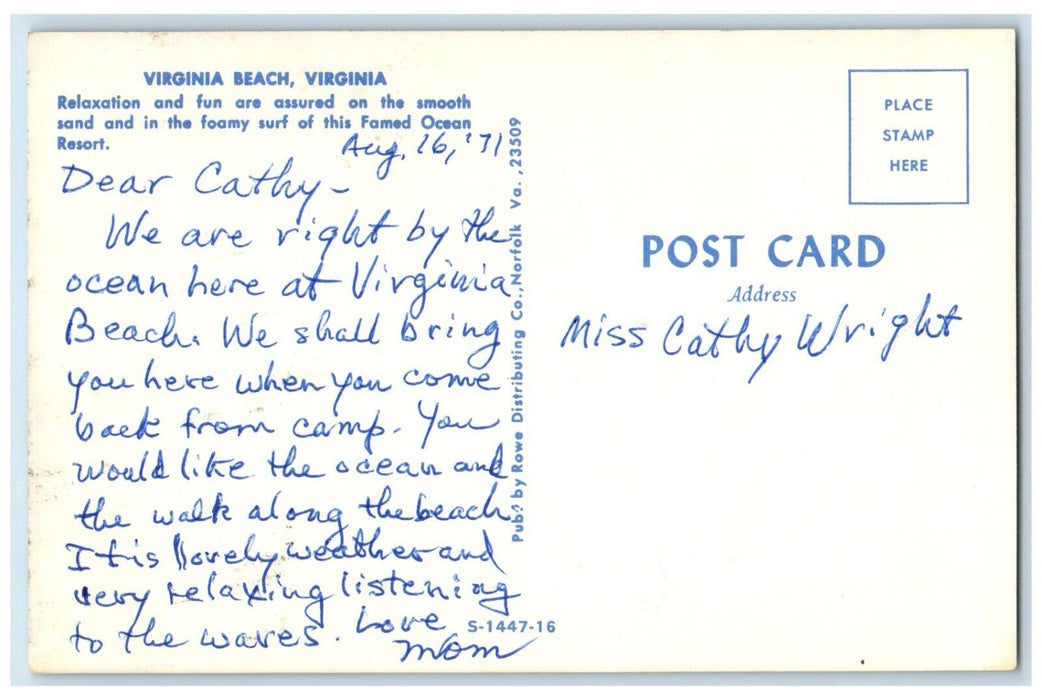 VIRGINIA BEACH, VIRGINIA
Relaxation and fun are assured on the smooth
sand and in the foamy surf of this Famed Ocean
Resort.
Aug, 16, '71
Dear Cathy-
We are right by the
ocean here at Virginia
Beach. We shall bring
you here when you come
back from camp. You
would like the ocean and
the walk along the beach.
It is lovely weather and
very relaxing listening
to the waves. Love
Mom
S-1447-16
Pub. by Rowe Distributing Co., Norfolk Va., 23509
PLACE
STAMP
HERE
POST CARD
Address
Miss Cathy Wright